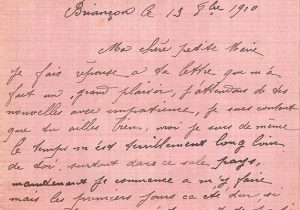 Briançon le 13 8bre 1910
Ma chère petite Marie
Je fais réponse a ta lettre qui m'a
fait un grand plaisir, j'attendais de tes
nouvelles avec impatience, je suis content
que tu ailles bien, moi je suis de même
le temps m'est terriblement long loin
de toi, surtout dans ce sale pays,
maintenant je commence a m'y faire
mais les premiers jours ca été dur si